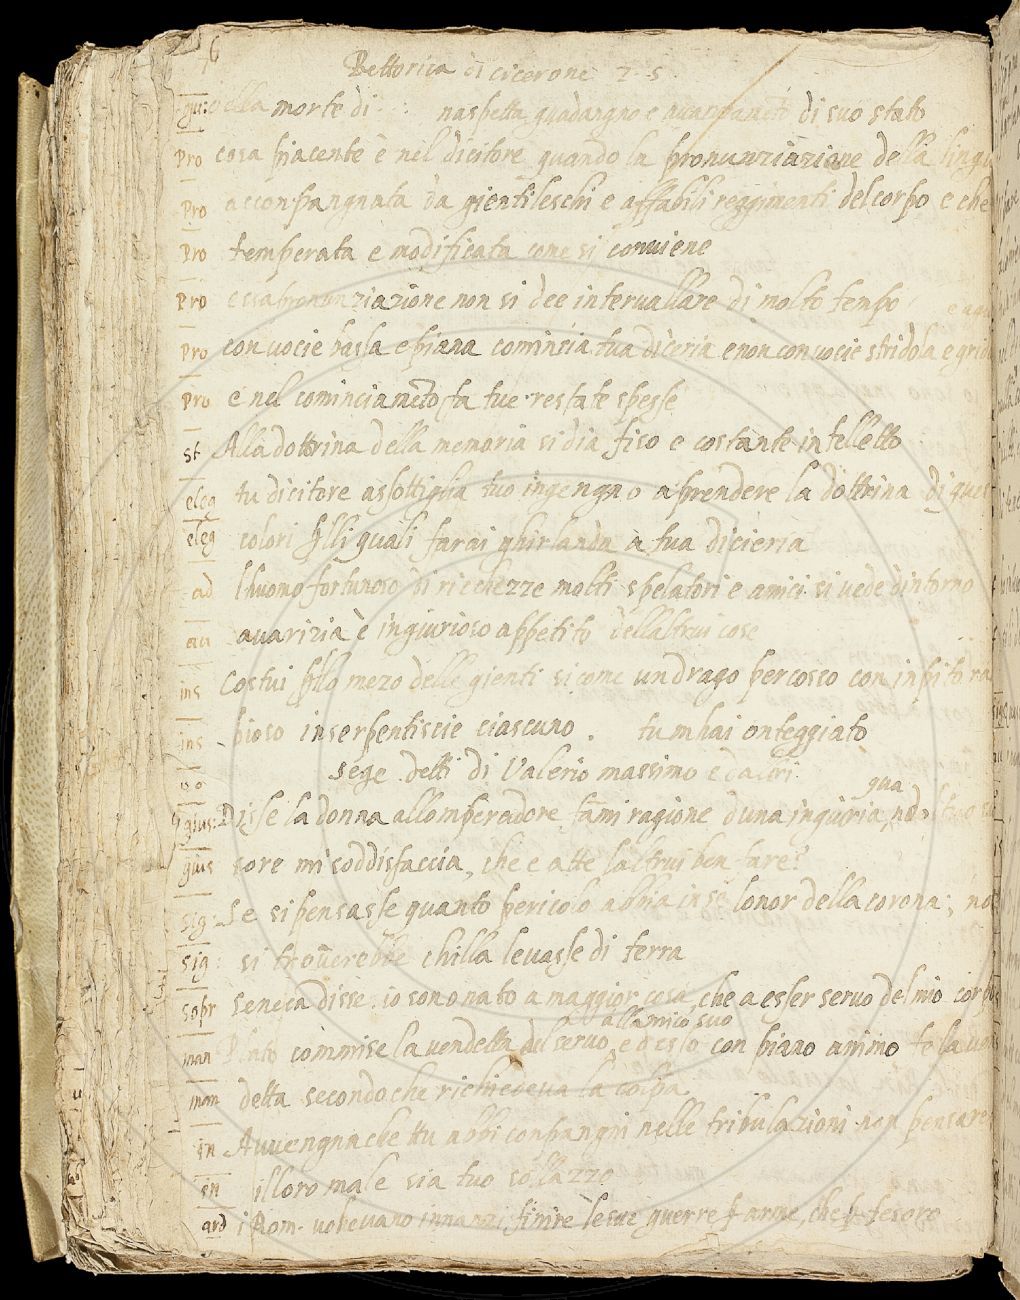 6
Rettorica di cicerone 2. 5
giu: della morte di naspetta guadangno e avanzameto di suo stato
Pro cosa piacente è nel dicitore quando la pronunziazione della lingu
Pro acconpangnata da gientileschi e affabili reggimenti del corpo e che
Pro temperata e modificata come si conviene
Pro essa pronunziazione non si dee intervallare di molto tempo
Pro con vocie bassa e piana comincia tua diceria e non con vocie stridola e grid
Pro e nel cominciameto fa tue restate spesse
st Alla dottrina della memoria si dia fiso e costante intelletto
eleg tu dicitore assottiglia tuo ingengno aprendere la dottrina di que
eleg colori p lli quali farai ghirlanda a tua diciería
ad l huomo fortunoso di ricchezze molti spelatori e amici si vede dintorno
au avarizia è ingiurioso appetito dell altrui cose
ins Costui p llo mezo delle gienti si come un drago percosso con inpito ra
ins bioso inserpentiscie ciascuno . tu mhai onteggiato
sege detti di Valerio massimo e daltri
gius: Disse la donna allomperadore fami ragione duna ingiuria, no
gius sore mi soddisfaccia, che e atte laltrui ben fare?
sig: Se si pensasse quanto pericolo abbia in se lonor della corona, no
sig: si troverebbe chilla levasse di terra
sopr Seneca disse io sono nato a maggior cosa, che a esser servo del mio corpo
allamico suo
man Plato commise la vendetta del servo, e desso con piano animo fe la ven
man detta secondo che richiedeva la colpa
in Avvengnache tu abbi conpangni nelle tribulazioni non pensare
in illoro male sia tuo sollazzo
ard i Rom. volevano innanzi finire le sue guerre p arme, che p tesoro